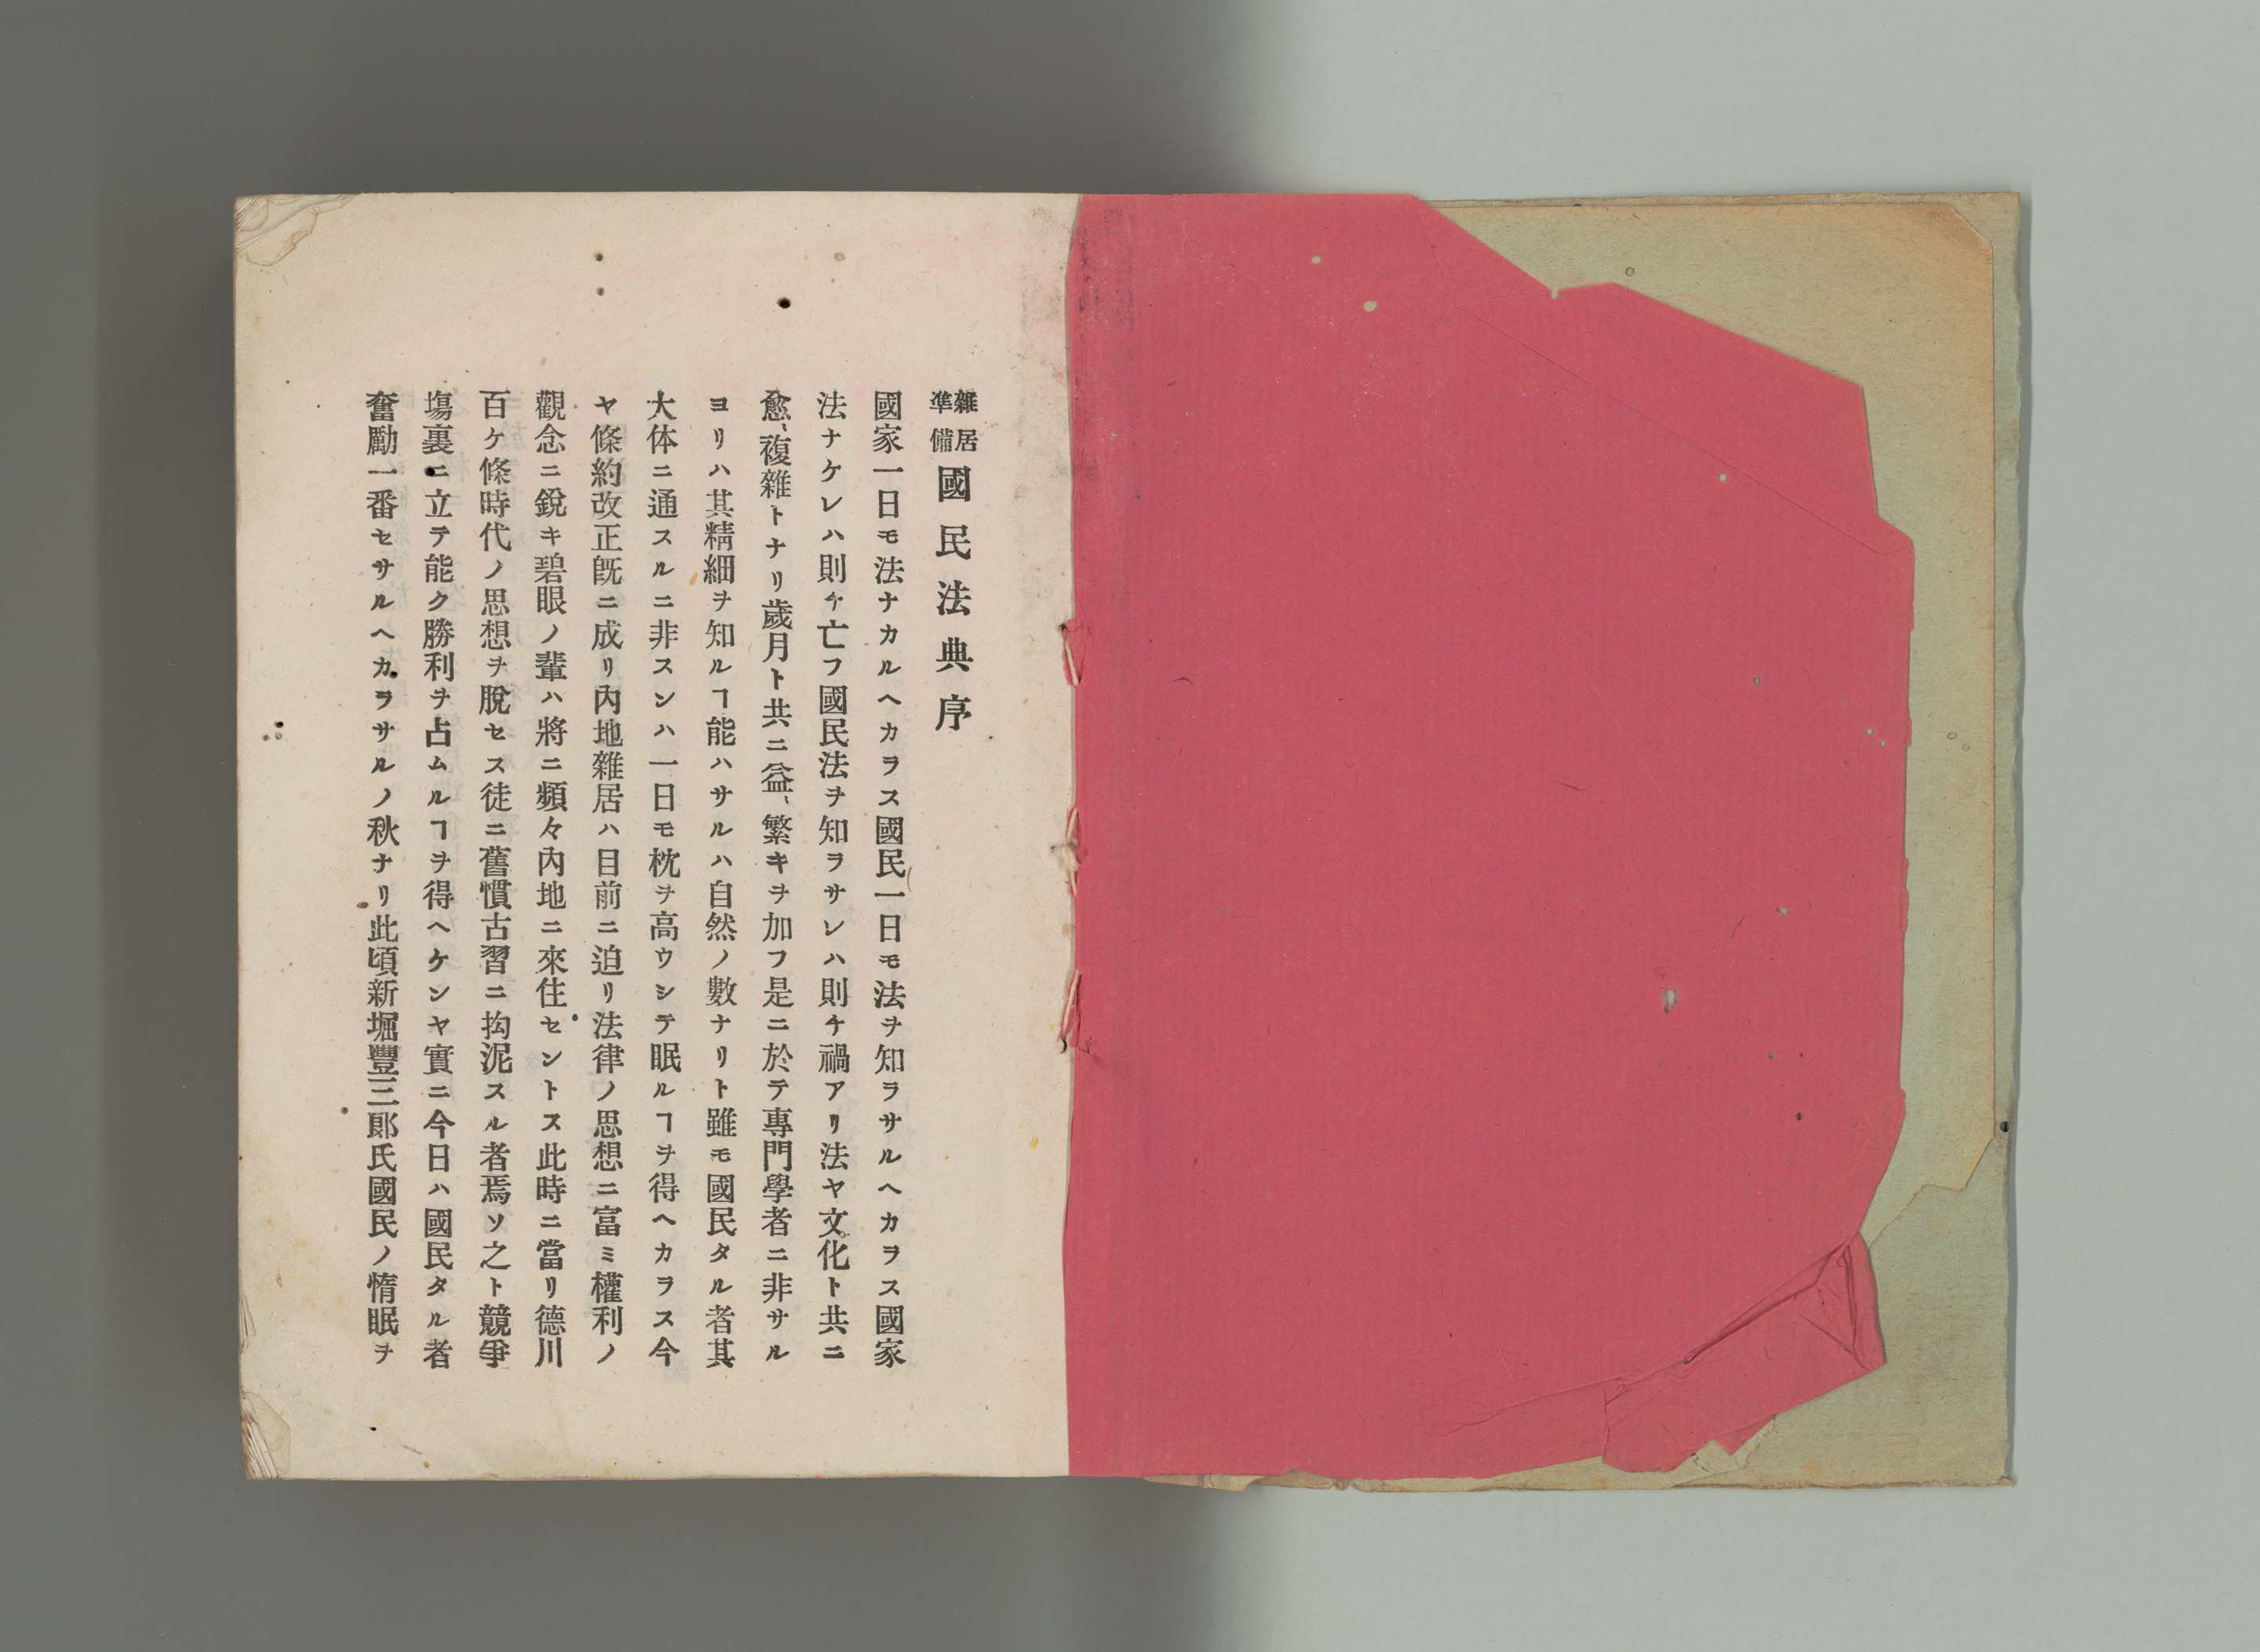 雜居準備國民法典序
國家一日モ法ナカルヘカラス國民一日モ法ヲ知ラサルヘカラス國家
法ナケレハ則チ亡フ國民法ヲ知ラサレハ則チ禍アリ法ヤ文化ト共ニ
愈〻複雜トナリ歲月ト共ニ益〻繁キヲ加フ是ニ於テ專門學者ニ非サル
ヨリハ其精細ヲ知ルヿ能ハサルハ自然ノ數ナリト雖モ國民タル者其
大体ニ通スルニ非スンハ一日モ枕ヲ高ウシテ眠ルヿヲ得ヘカラス今
ヤ條約改正既ニ成リ內地雜居ハ目前ニ迫リ法律ノ思想ニ富ミ權利ノ
觀念ニ銳キ碧眼ノ輩ハ將ニ頻々內地ニ來住セントス此時ニ當リ德川
百ケ條時代ノ思想ヲ脫セス徒ニ舊慣古習ニ拘泥スル者焉ソ之ト競爭
塲裏ニ立テ能ク勝利ヲ占ムルヿヲ得ヘケンヤ實ニ今日ハ國民タル者
奮勵一番セサルヘカラサルノ秋ナリ此頃新堀豐三郞氏國民ノ惰眠ヲ